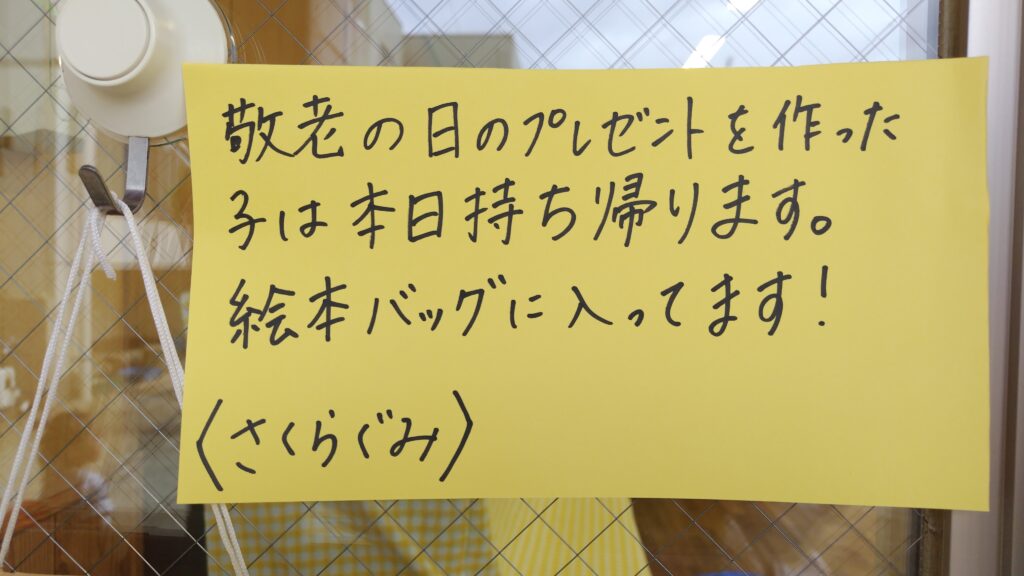 敬老の日のプレゼントを作った
子は本日持ち帰ります。
絵本バッグに入ってます!
〈さくらぐみ〉